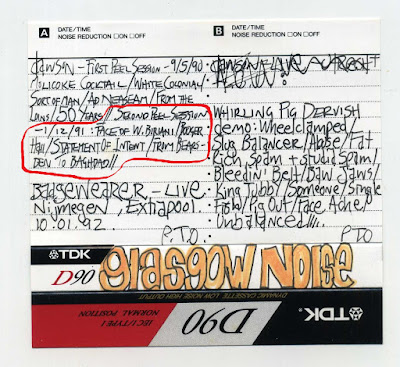 A DATE/TIME
NOISE REDUCTION □ON □OFF
B DATE/TIME
NOISE REDUCTION □ON □OFF
DAWSON - FIRST PEEL SESSION - 9/5/90
COCKTAIL / WHITE COLONIAL/
SORT OF MAN / AD NEASEAM / FROM THE
50 YEARS // SECOND PEEL SESSION
- 1/12/91: FACE OF W. BQUANI / BOOKER
HALL / STATEMENT OF INTENT / TRIM BEARS-
DEN TO BAGHDAD //
BADGEWEARER - LIVE
Nijmegen, EXTRAPOOL
10.01.92
P.T.O
WHIRLING PIG DERVISH
demo: Wheelclamped
Slug Balancer / Abse / Fat
Rich Spam + Studio Spam /
Bleedin' Belt / Baw Jaws /
King Tubby / Someone / Single
Fish / Pig Out / Face Ache /
Unbalanced ////.
P.T.O
TDK
D90
GLASGOW NOISE
DYNAMIC CASSETTE LOW NOISE HIGH OUTPUT
IEC I / TYPE I
NORMAL POSITION
D90
TDK